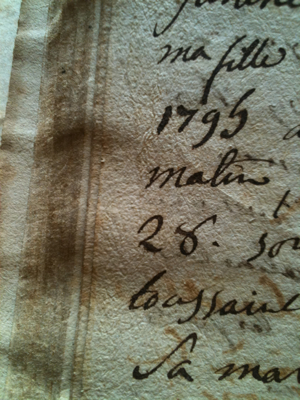 ma fille
1795
matin
28. son
toussaint
Sa mar